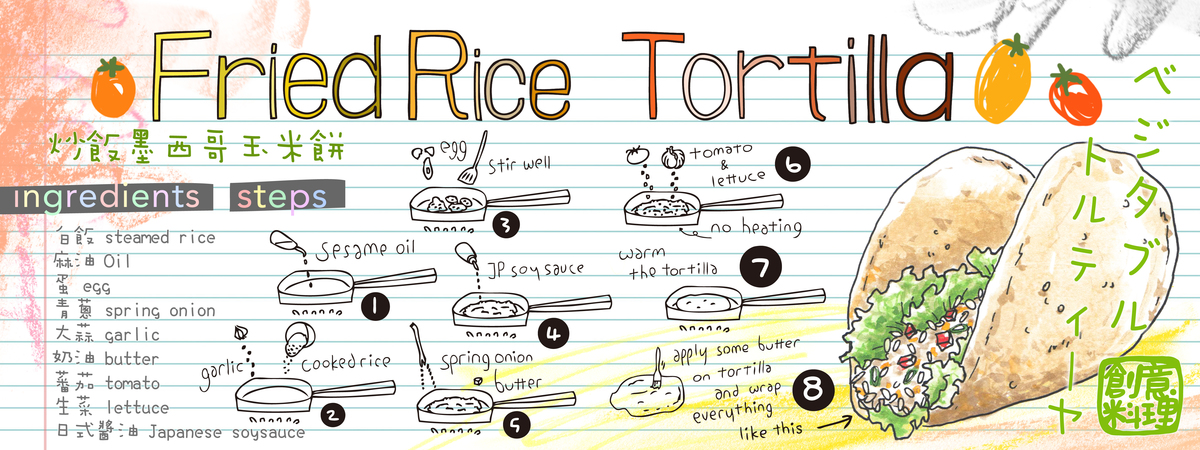 Fried Rice Tortilla
炒飯墨西哥玉米餅
ingredients steps
白飯 steamed rice
麻油 Oil
蛋 egg
青蔥 spring onion
大蒜 garlic
奶油 butter
蕃茄 tomato
生菜 lettuce
日式醬油 Japanese soysauce
sesame oil
1
garlic
cooked rice
2
egg
stir well
3
JP soysauce
4
spring onion
butter
5
tomato
&
lettuce
6
no heating
warm
the tortilla
7
apply some butter
on tortilla
and wrap
everything
like this
8
ベジタブル
トルティーヤ
創意
料理